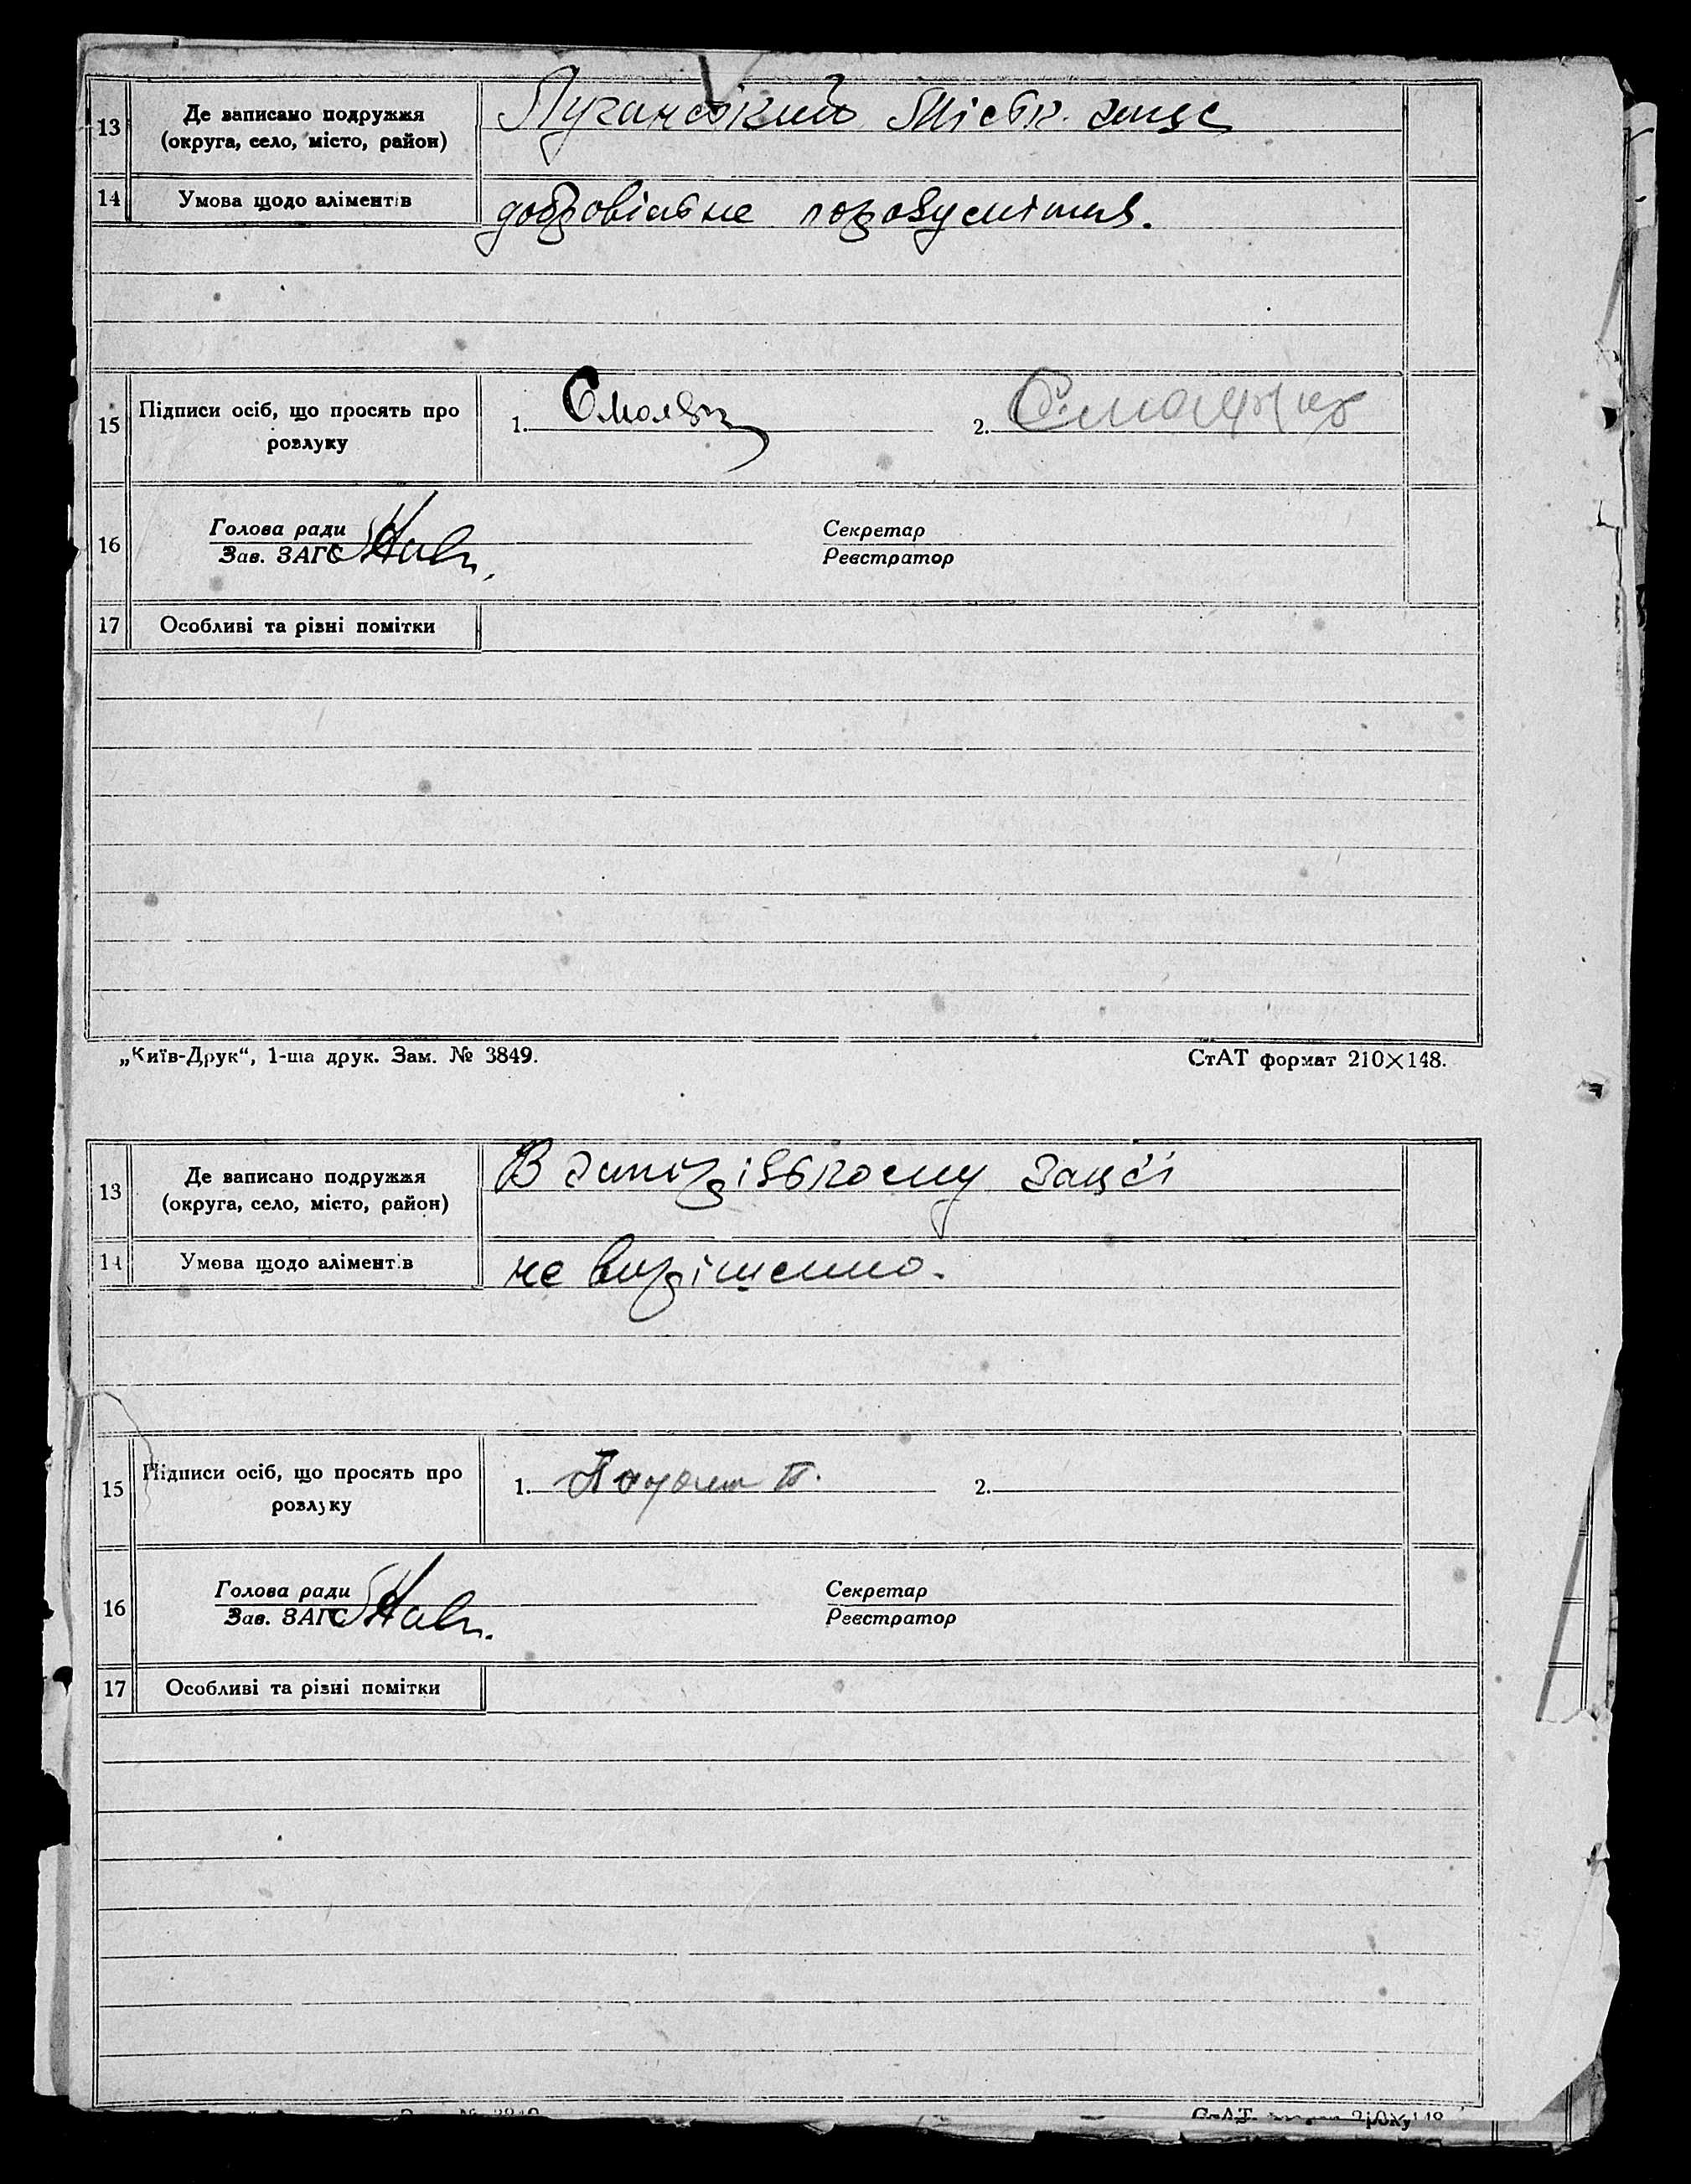 13 Де записано подружжя Луганський Міськ. загс
(округа, село, місто, район)
14 Умова щодо аліментів добровільне порозуміння.
15 Підписи осіб, що просять про 1. 2.
розлуку
Голова ради Секретар
16
Зав. ЗАГС Реєстратор
17 Особливі та різні помітки
„Київ-Друк“, 1-ша друк. Зам. № 3849. СтАТ формат 210×148.
13 Де записано подружжя В загсі
(округа, село, місто, район)
14 Умова щодо аліментів не вирішенно.
15 Підписи осіб, що просять про 1. 2.
розлуку
Голова ради Секретар
16
Зав. ЗАГС Реєстратор
17 Особливі та різні помітки